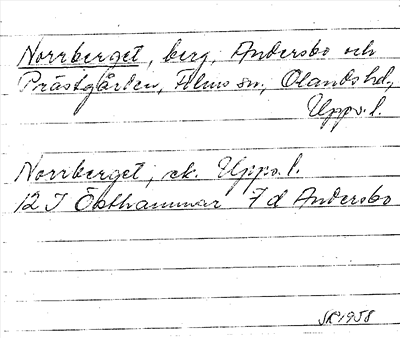 Norrberget, berg, Andersbo och
Prästgården, Films sn, Olands hd,
Upps. l.
Norrberget, ek. Upps. l.
12 I Östhammar 7d Andersbo
1958